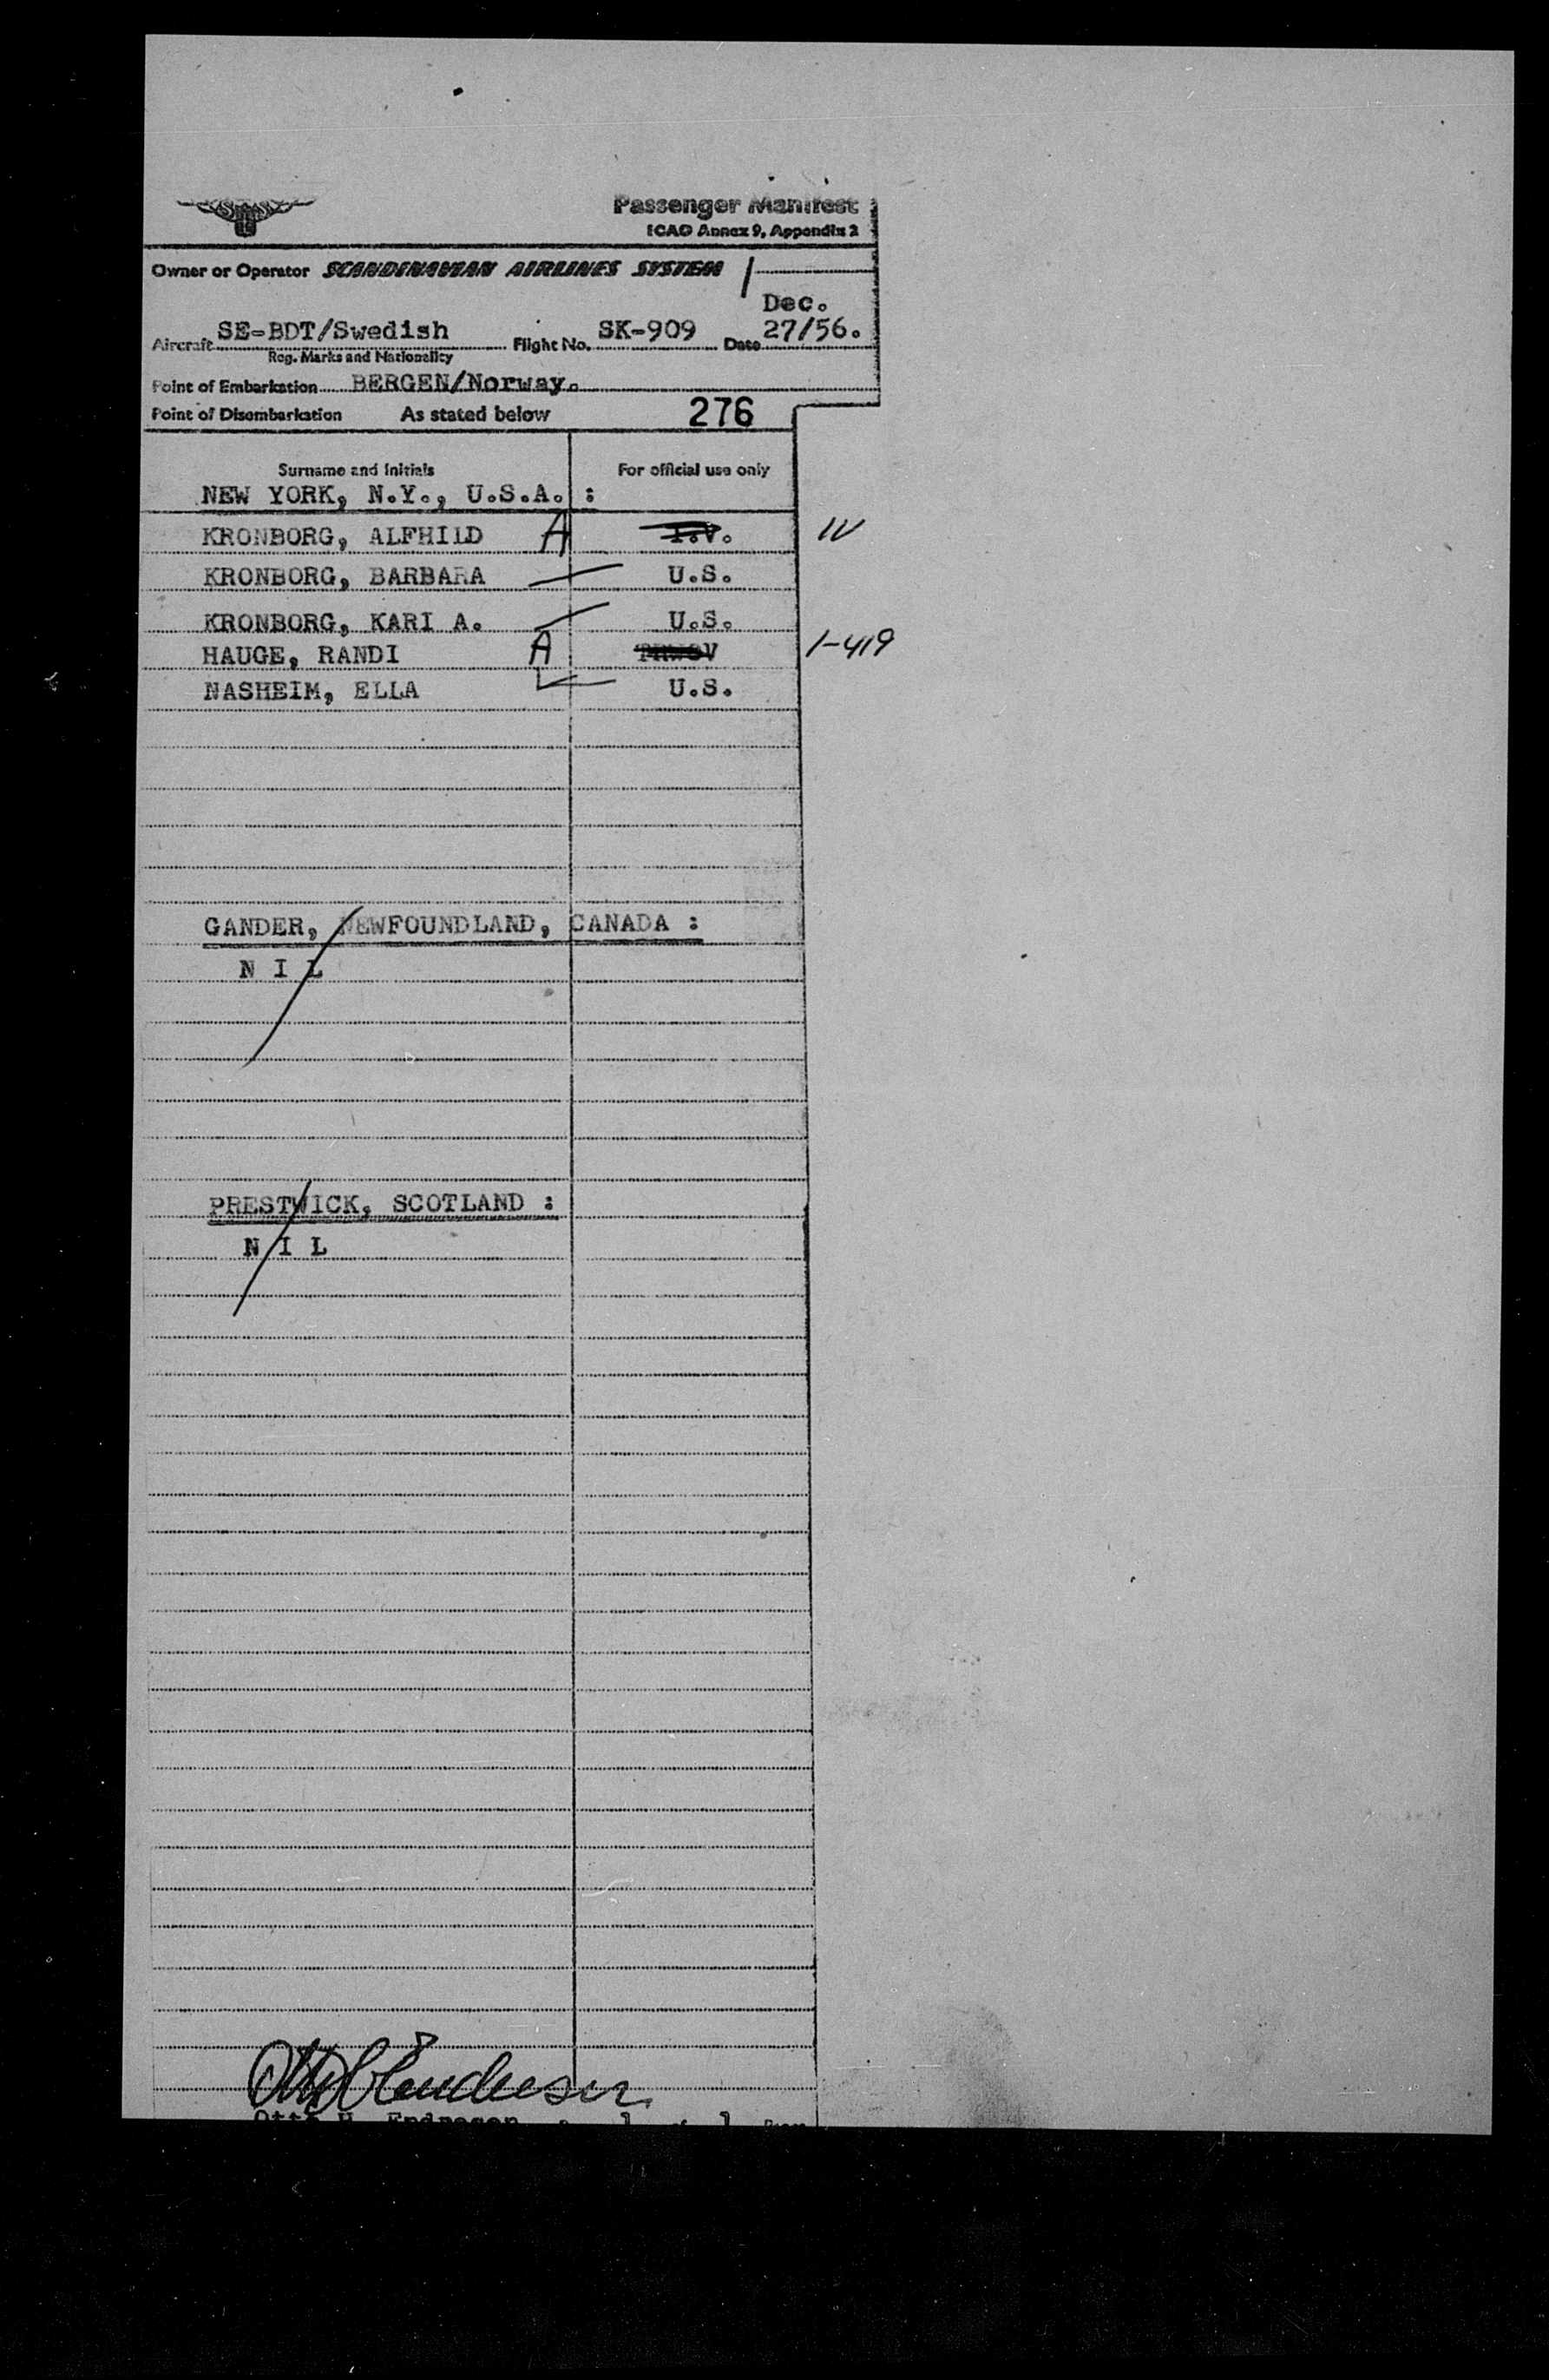 Passenger Manifest
ICAO Annex 9, Appendix 2
Owner or Operator SCANDINAVIAN AIRLINES SYSTEM
Dec.
Aircraft SE-BDT/Swedish Flight No. SK-909 Date 27/56.
Reg. Marks and Nationality
Point of Embarkation BERGEN/Norway.
Point of Disembarkation As stated below 276
Surname and Initials For official use only
NEW YORK, N.Y., U.S.A. :
KRONBORG, ALFHILD A I.V. IV
KRONBORG, BARBARA U.S.
KRONBORG, KARI A. U.S.
HAUGE, RANDI A 1-419
NASHEIM, ELLA U.S.
GANDER, NEWFOUNDLAND, CANADA :
N I L
PRESTWICK, SCOTLAND :
N I L
Otto H. Endresen